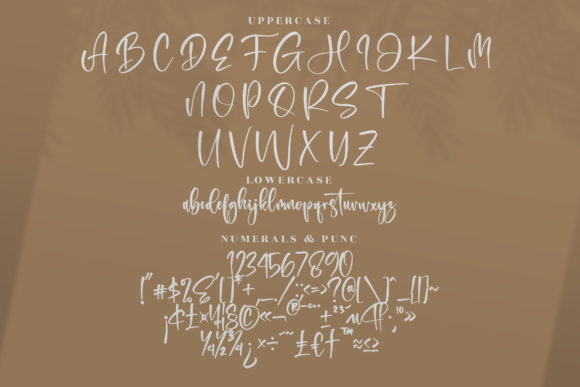 UPPERCASE
ABCDEFGHIJKLM
NOPQRST
UVWXYZ
LOWERCASE
abcdefghijklmnopqrstuvwxyz
NUMERALS & PUNC
1234567890
!"#$%&'()*+,-./:;<=>?@[\]^_{|}~
¡¢£¤¥¦§©«¬®¯°±²³µ¶·¸¹º»
¼½¾¿×÷ˆ˜£€†™≈≤≥